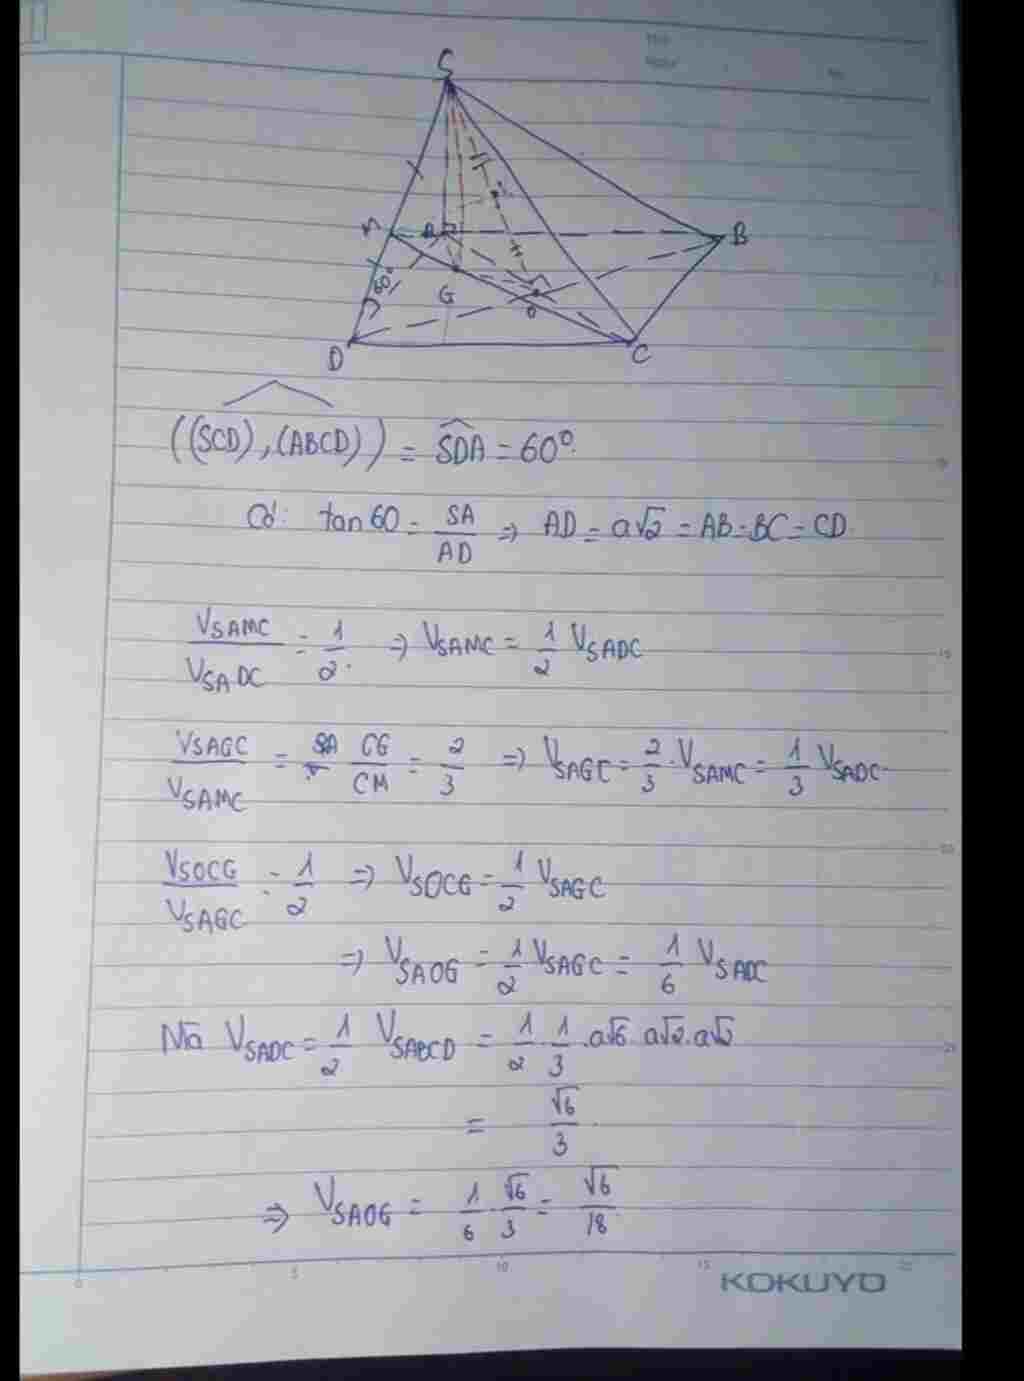 S
M
A
B
60°
G
O
D
C
((SCD), (ABCD)) = SDA = 60°
Có: tan60 = SA/AD => AD = a√2 = AB = BC = CD
VSAMC/VSADC = 1/2. => VSAMC = 1/2 VSADC
VSAGC/VSAMC = CG/CM = 2/3 => VSAGC = 2/3 . VSAMC = 1/3 VSADC.
VSOCG/VSAGC = 1/2 => VSOCG = 1/2 VSAGC
=> VSAOG = 1/2 VSAGC = 1/6 VSADC
Mà VSADC = 1/2 VSABCD = 1/2 . 1/3 . a√6 . a√2 . a√2
= √6/3
=> VSAOG = 1/6 . √6/3 = √6/18
0 5 10 15
KOKUYO